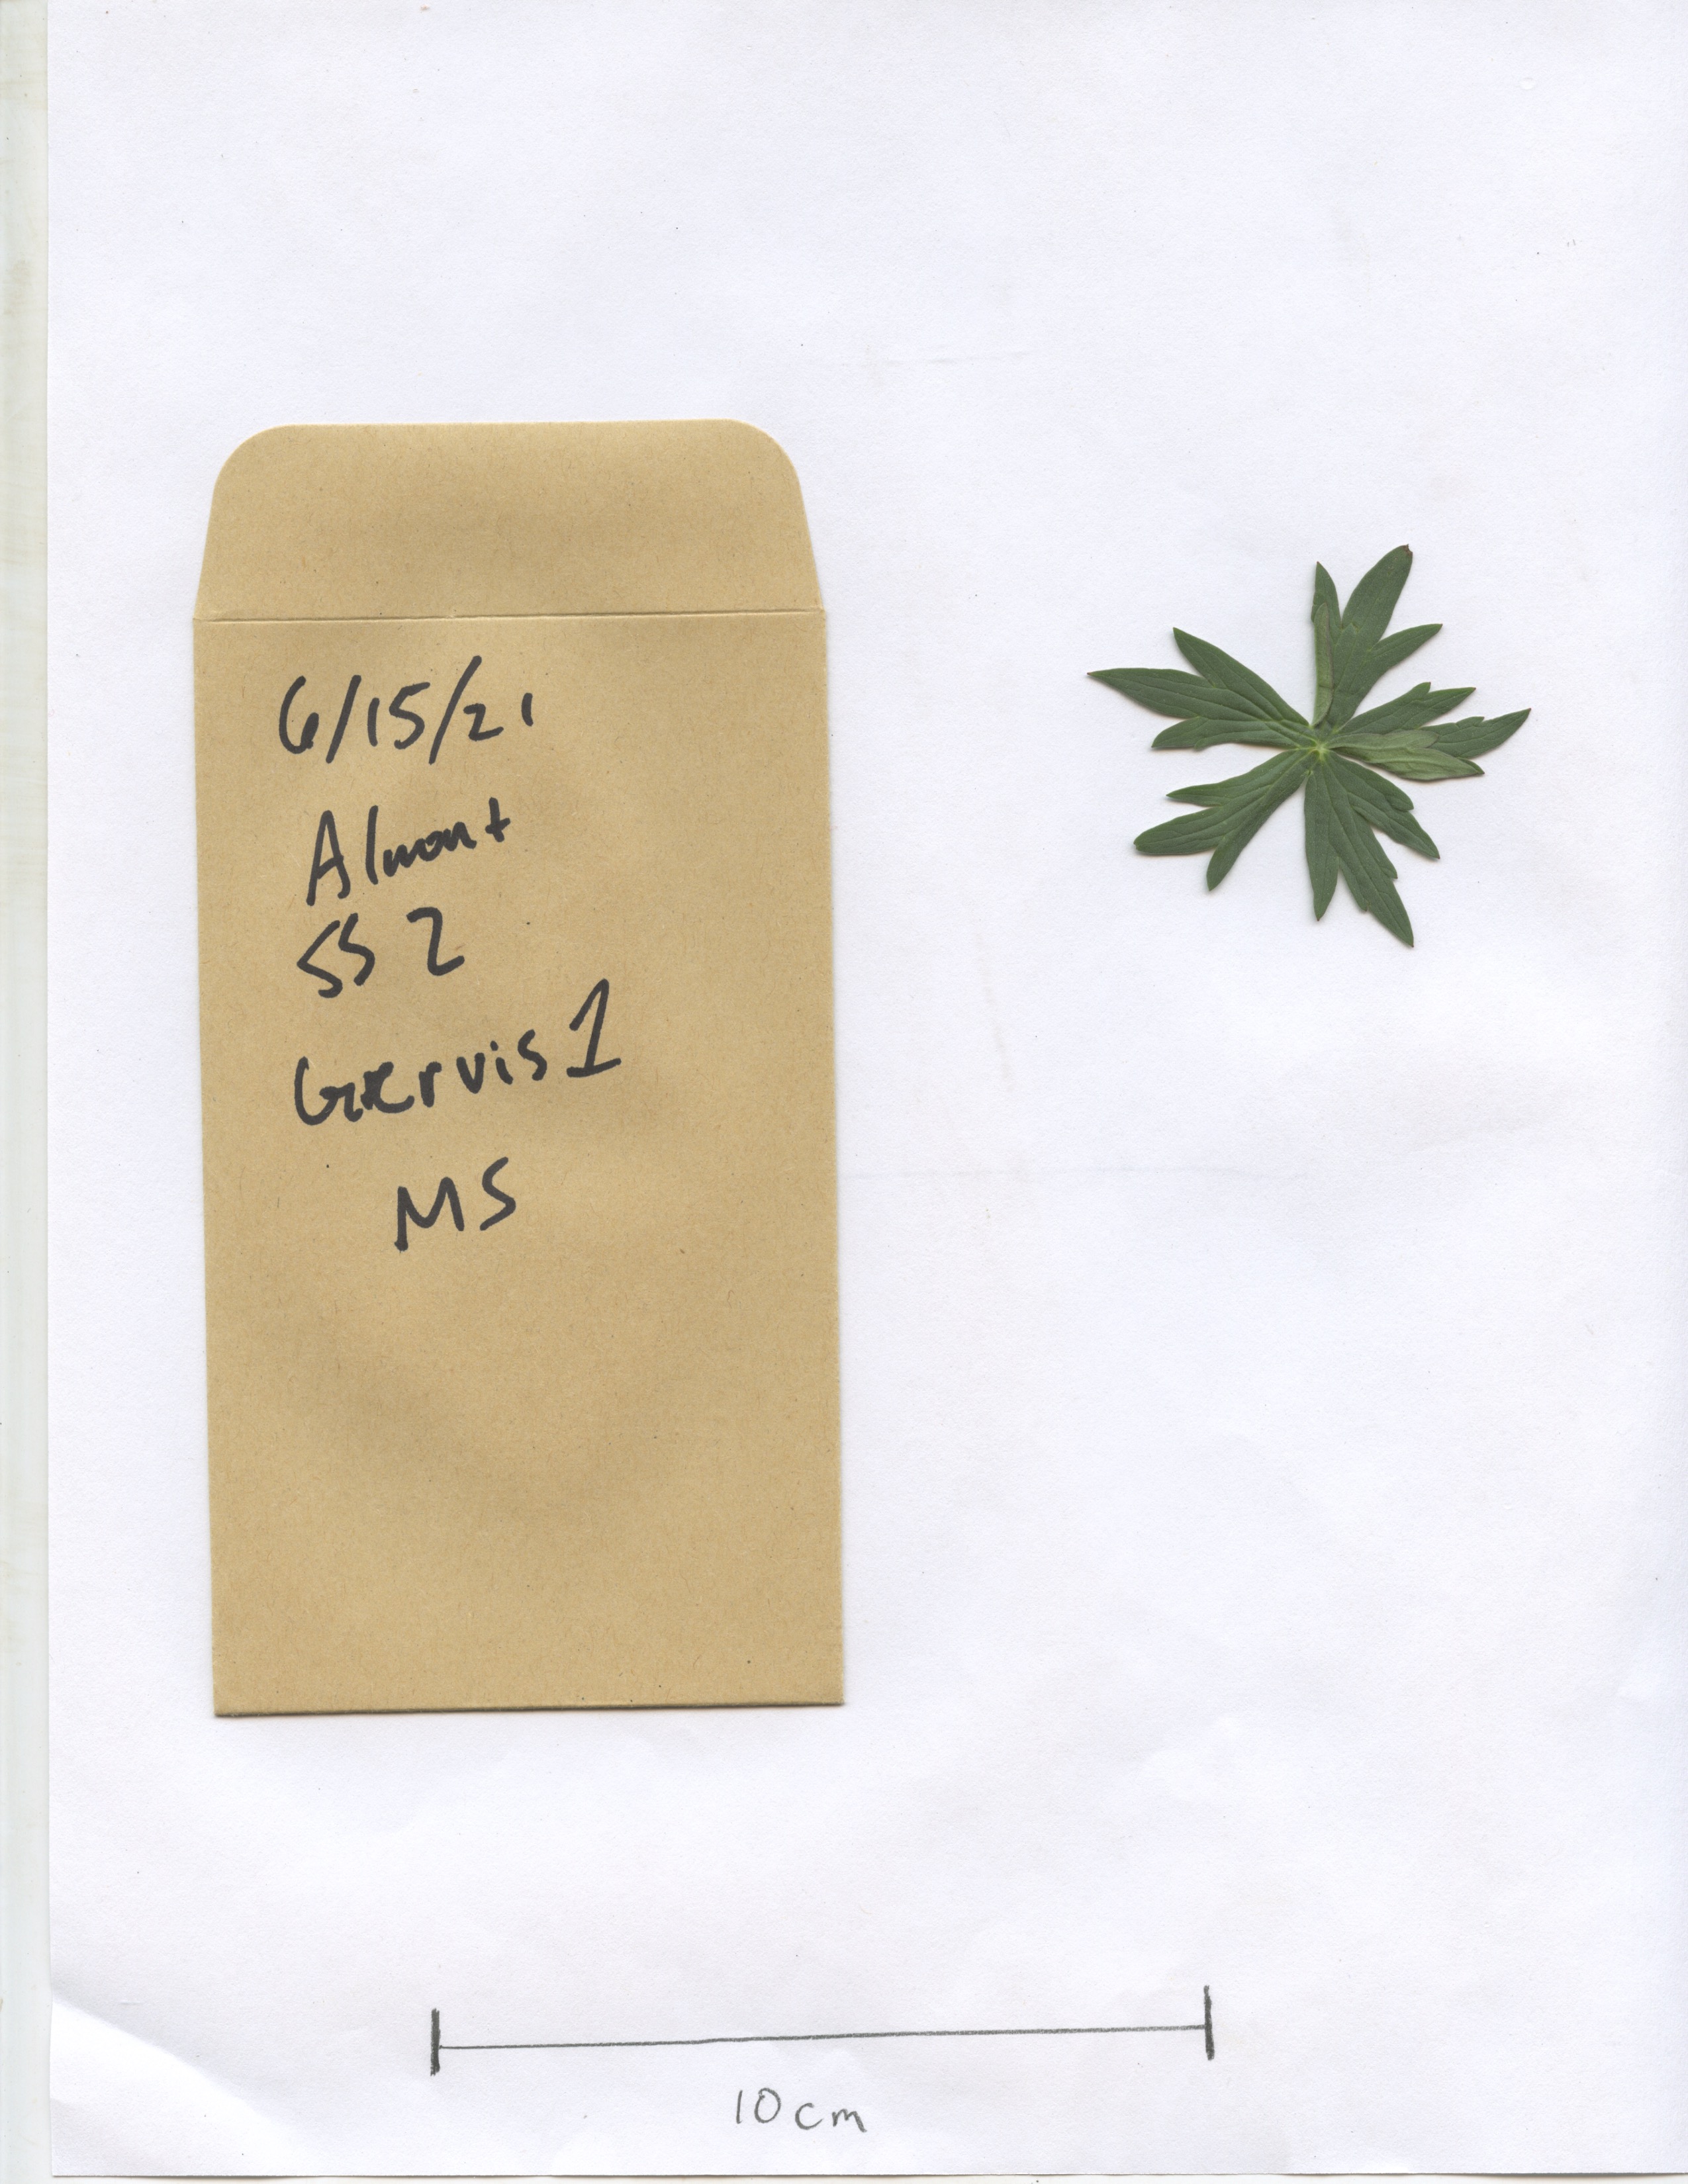 6/15/21
Almont
SS 2
Gervis 1
MS
10cm